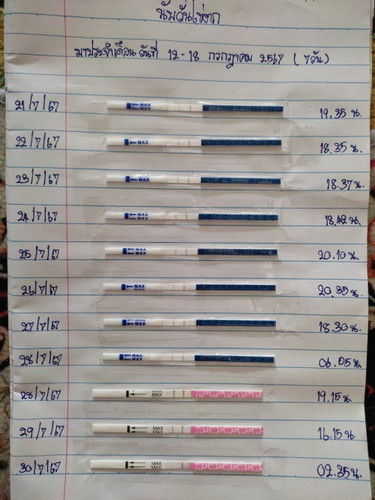 นับวันไข่ตก
มาประจำเดือน วันที่ 12 - 18 กรกฎาคม 2567 ( 7 วัน )
21/7/67 MAX 19.35 น.
22/7/67 MAX 18.35 น.
23/7/67 MAX 18.37 น.
24/7/67 MAX 18.42 น.
25/7/67 MAX 20.10 น.
26/7/67 MAX 20.35 น.
27/7/67 MAX 18.30 น.
28/7/67 MAX 06.05 น.
28/7/67 MAX 19.15 น.
29/7/67 MAX 16.15 น.
30/7/67 MAX 02.35 น.